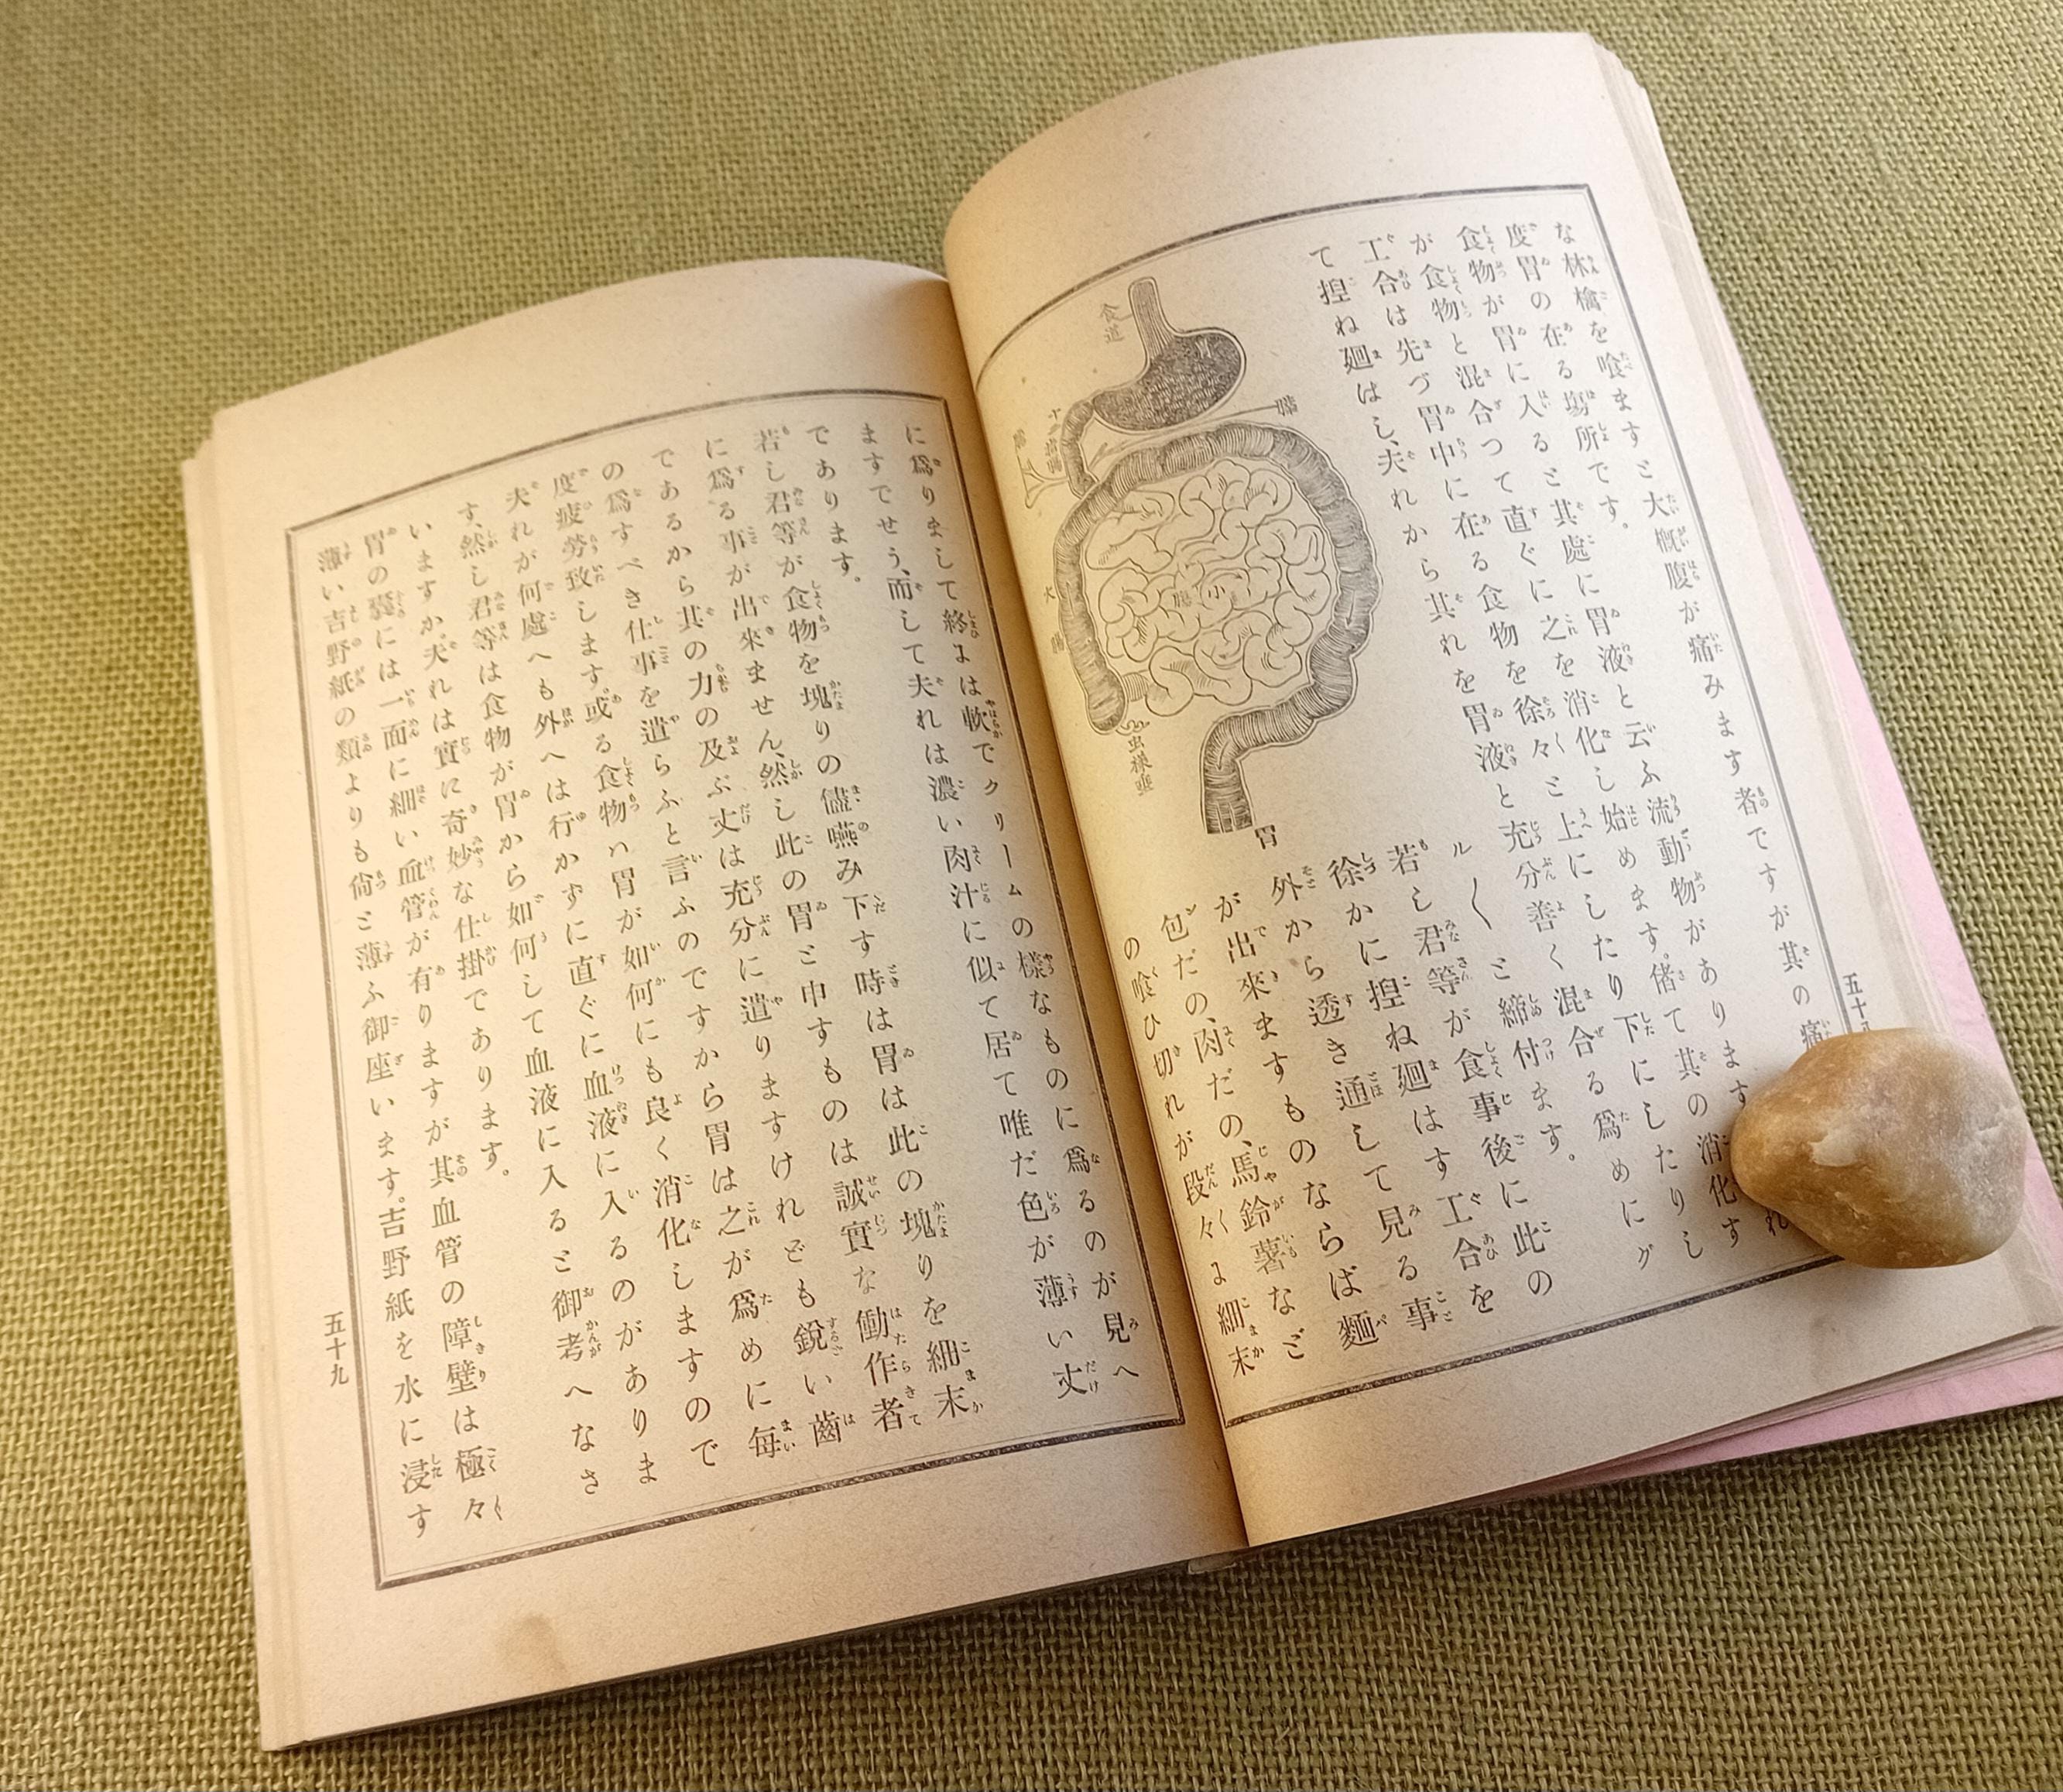 な林檎を喰ますと大概腹が痛みます者ですが其の痛
度胃の在る塲所です。胃液と云ふ流動物があります
食物が胃に入ると其處に胃液と云ふ流動物があります
が食物と混合つて直ぐに之を消化し始めます。偖て其の消化す
工合は先づ胃中に在る食物を徐々と上にしたり下にしたりし
て捏ね廻はし、夫れから其れを胃液と充分善く混合る爲めにグ
ル〱と締付ます。
若し君等が食事後に此の
胃
徐かに捏ね廻はす工合を
外から透き通して見る事
が出來ますものならば麵
包だの、肉だの、馬鈴薯など
の喰ひ切れが段々に細末
食道
十二指腸
膵
大腸
小腸
虫様垂
五十
に爲りまして終には軟でクリームの樣なものに爲るのが見へ
ますでせう、而して夫れは濃い肉汁に似て居て唯だ色が薄い丈
であります。
若し君等が食物を塊りの儘嚥み下す時は胃は此の塊りを細末
に爲る事が出來ません、然し此の胃と申すものは誠實な働作者
であるから其の力の及ぶ丈は充分に遣りますけれども銳い齒
の爲すべき仕事を遣らふと言ふのですから胃は之が爲めに每
度疲勞致します或る食物ハ胃が如何にも良く消化しますので
夫れが何處へも外へは行かずに直ぐに血液に入るのがありま
す、然し君等は食物が胃から如何して血液に入ると御考へなさ
いますか、夫れは實に奇妙な仕掛であります。
胃の囊には一面に細い血管が有りますが其血管の障壁は極々
薄い吉野紙の類よりも尙と薄ふ御座います。吉野紙を水に浸す
五十九